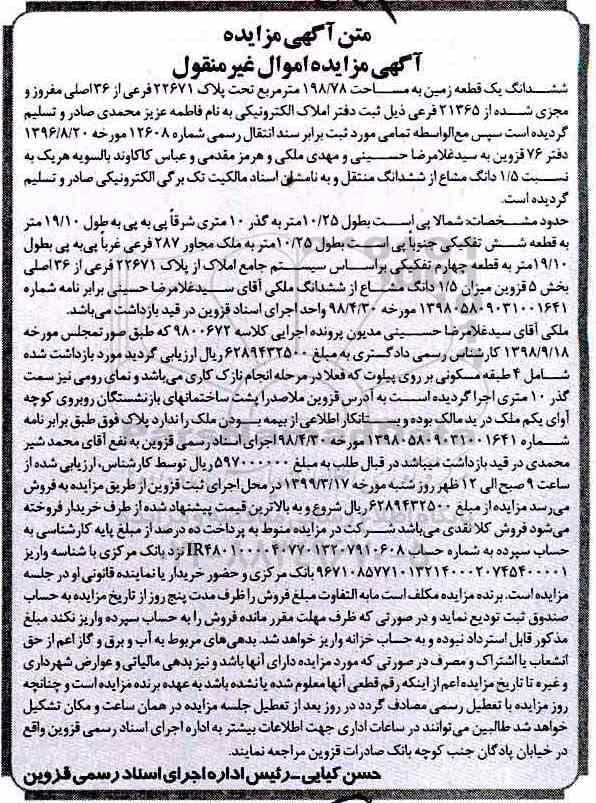 متن آگهی مزایده
آگهی مزایده اموال غیر منقول
ششدانگ یک قطعه زمین به مساحت ۱۹۸/۷۸ مترمربع تحت پلاک ۲۲۶۷۱ فرعی از ۳۶اصلی مفروز و
مجزی شده از ۲۱۳۶۵ فرعی ذیل ثبت دفتر املاک الکترونیکی به نام فاطمه عزیز محمدی صادر و تسلیم
گردیده است سپس مع‌الواسطه تمامی مورد ثبت برابر سند انتقال رسمی شماره ۱۲۶۰۸ مورخه ۱۳۹۶/۸/۲۰
دفتر ۷۶ قزوین به سیدغلامرضا حسینی و مهدی ملکی و هرمز مقدمی و عباس کاکاوند بالسویه هریک به
نسبت ۱/۵ دانگ مشاع از ششدانگ منتقل و به نامشان اسناد مالکیت تک برگی الکترونیکی صادر و تسلیم
گردیده است.
حدود مشخصات: شمالا پی است بطول ۱۰/۲۵متر به گذر ۱۰ متری شرقاً پی به پی به طول ۱۹/۱۰ متر
به قطعه شش تفکیکی جنوباً پی است بطول ۱۰/۲۵متر به ملک مجاور ۲۸۷ فرعی غرباً پی‌به پی بطول
۱۹/۱۰متر به قطعه چهارم تفکیکی براساس سیستم جامع املاک از پلاک ۲۲۶۷۱ فرعی از ۳۶اصلی
بخش ۵ قزوین میزان ۱/۵ دانگ مشاع از ششدانگ ملکی آقای سیدغلامرضا حسینی برابر نامه شماره
۱۳۹۸۰۵۸۰۹۰۳۱۰۰۱۶۴۱ مورخه ۹۸/۴/۳۰ واحد اجرای اسناد قزوین در قید بازداشت می‌باشد.
ملکی آقای سیدغلامرضا حسینی مدیون پرونده اجرایی کلاسه ۹۸۰۰۶۷۲ که طبق صورتمجلس مورخه
۱۳۹۸/۹/۱۸ کارشناس رسمی دادگستری به مبلغ ۶۲۸۹۴۳۲۵۰۰ ریال ارزیابی گردید مورد بازداشت شده
شامل ۴ طبقه مسکونی بر روی پیلوت که فعلا در مرحله انجام نازک کاری می‌باشد و نمای رومی نیز سمت
گذر ۱۰ متری اجرا گردیده است به آدرس قزوین ملاصدرا پشت ساختمانهای بازنشستگان روبروی کوچه
آوای یکم ملک در ید مالک بوده و بستانکار اطلاعی از بیمه بودن ملک را ندارد پلاک فوق طبق برابر نامه
شماره ۱۳۹۸۰۵۸۰۹۰۳۱۰۰۱۶۴۱ مورخه ۹۸/۴/۳۰ اجرای اسناد رسمی قزوین به نفع آقای محمد شیر
محمدی در قید بازداشت میباشد در قبال طلب به مبلغ ۵۹۷۰۰۰۰۰۰ ریال توسط کارشناس، ارزیابی شده از
ساعت ۹ صبح الی ۱۲ ظهر روز شنبه مورخه ۱۳۹۹/۳/۱۷ در محل اجرای ثبت قزوین از طریق مزایده به فروش
می‌رسد مزایده از مبلغ ۶۲۸۹۴۳۲۵۰۰ریال شروع و به بالاترین قیمت پیشنهاد شده از طرف خریدار فروخته
می‌شود فروش کلا نقدی می‌باشد شرکت در مزایده منوط به پرداخت ده درصد از مبلغ پایه کارشناسی به
حساب سپرده به شماره حساب IR۴۸۰۱۰۰۰۰۴۰۷۷۰۱۳۲۰۷۹۱۰۶۰۸ نزد بانک مرکزی با شناسه واریز
۹۶۷۱۰۸۵۷۷۱۰۱۳۲۱۴۰۰۰۲۰۷۴۵۴۰۰۰۰۱ بانک مرکزی و حضور خریدار یا نماینده قانونی او در جلسه
مزایده است. برنده مزایده مکلف است مابه التفاوت مبلغ فروش را ظرف مدت پنج روز از تاریخ مزایده به حساب
صندوق ثبت تودیع نماید و در صورتی که ظرف مهلت مقرر مانده فروش را به حساب سپرده واریز نکند مبلغ
مذکور قابل استرداد نبوده و به حساب خزانه واریز خواهد شد. بدهی‌های مربوط به آب و برق و گاز اعم از حق
انشعاب یا اشتراک و مصرف در صورتی که مورد مزایده دارای آنها باشد و نیز بدهی مالیاتی و عوارض شهرداری
و غیره تا تاریخ مزایده اعم از اینکه رقم قطعی آنها معلوم شده یا نشده باشد به عهده برنده مزایده است و چنانچه
روز مزایده با تعطیل رسمی مصادف گردد در روز بعد از تعطیل جلسه مزایده در همان ساعت و مکان تشکیل
خواهد شد طالبین می‌توانند در ساعات اداری جهت اطلاعات بیشتر به اداره اجرای اسناد رسمی قزوین واقع
در خیابان پادگان جنب کوچه بانک صادرات قزوین مراجعه نمایند.
حسن کیایی-رئیس اداره اجرای اسناد رسمی قزوین